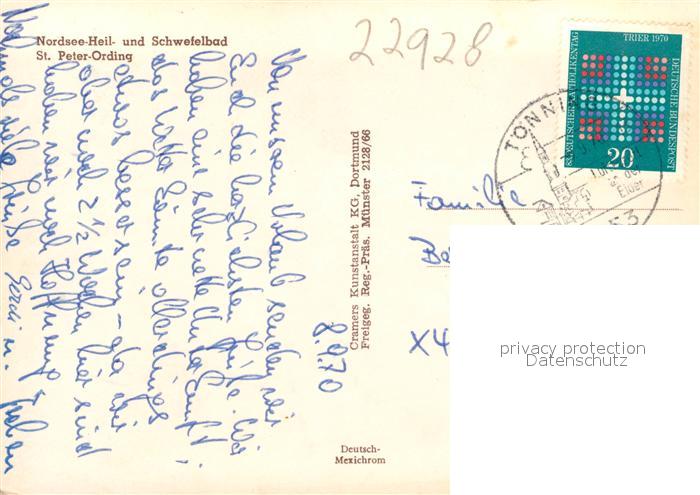 Nordsee-Heil- und Schwefelbad
St. Peter-Ording
22928
8.9.70
Von unserem Urlaub senden wir
Euch die herzlichsten Grüße. Wir
haben eine sehr nette Unterkunft,
das Wetter könnte allerdings
etwas besser sein – da wir
aber noch 2 1/2 Wochen hier sind
haben wir noch Hoffnung.
Nochmals viele Grüße
Cramers Kunstanstalt KG, Dortmund
Freigeg. Reg.-Präs. Münster 2128/66
Deutsch-
Mexichrom
TRIER 1970
83. DEUTSCHER KATHOLIKENTAG
DEUTSCHE BUNDESPOST
20
TÖNNING
Eider
Familie
X4
privacy protection
Datenschutz